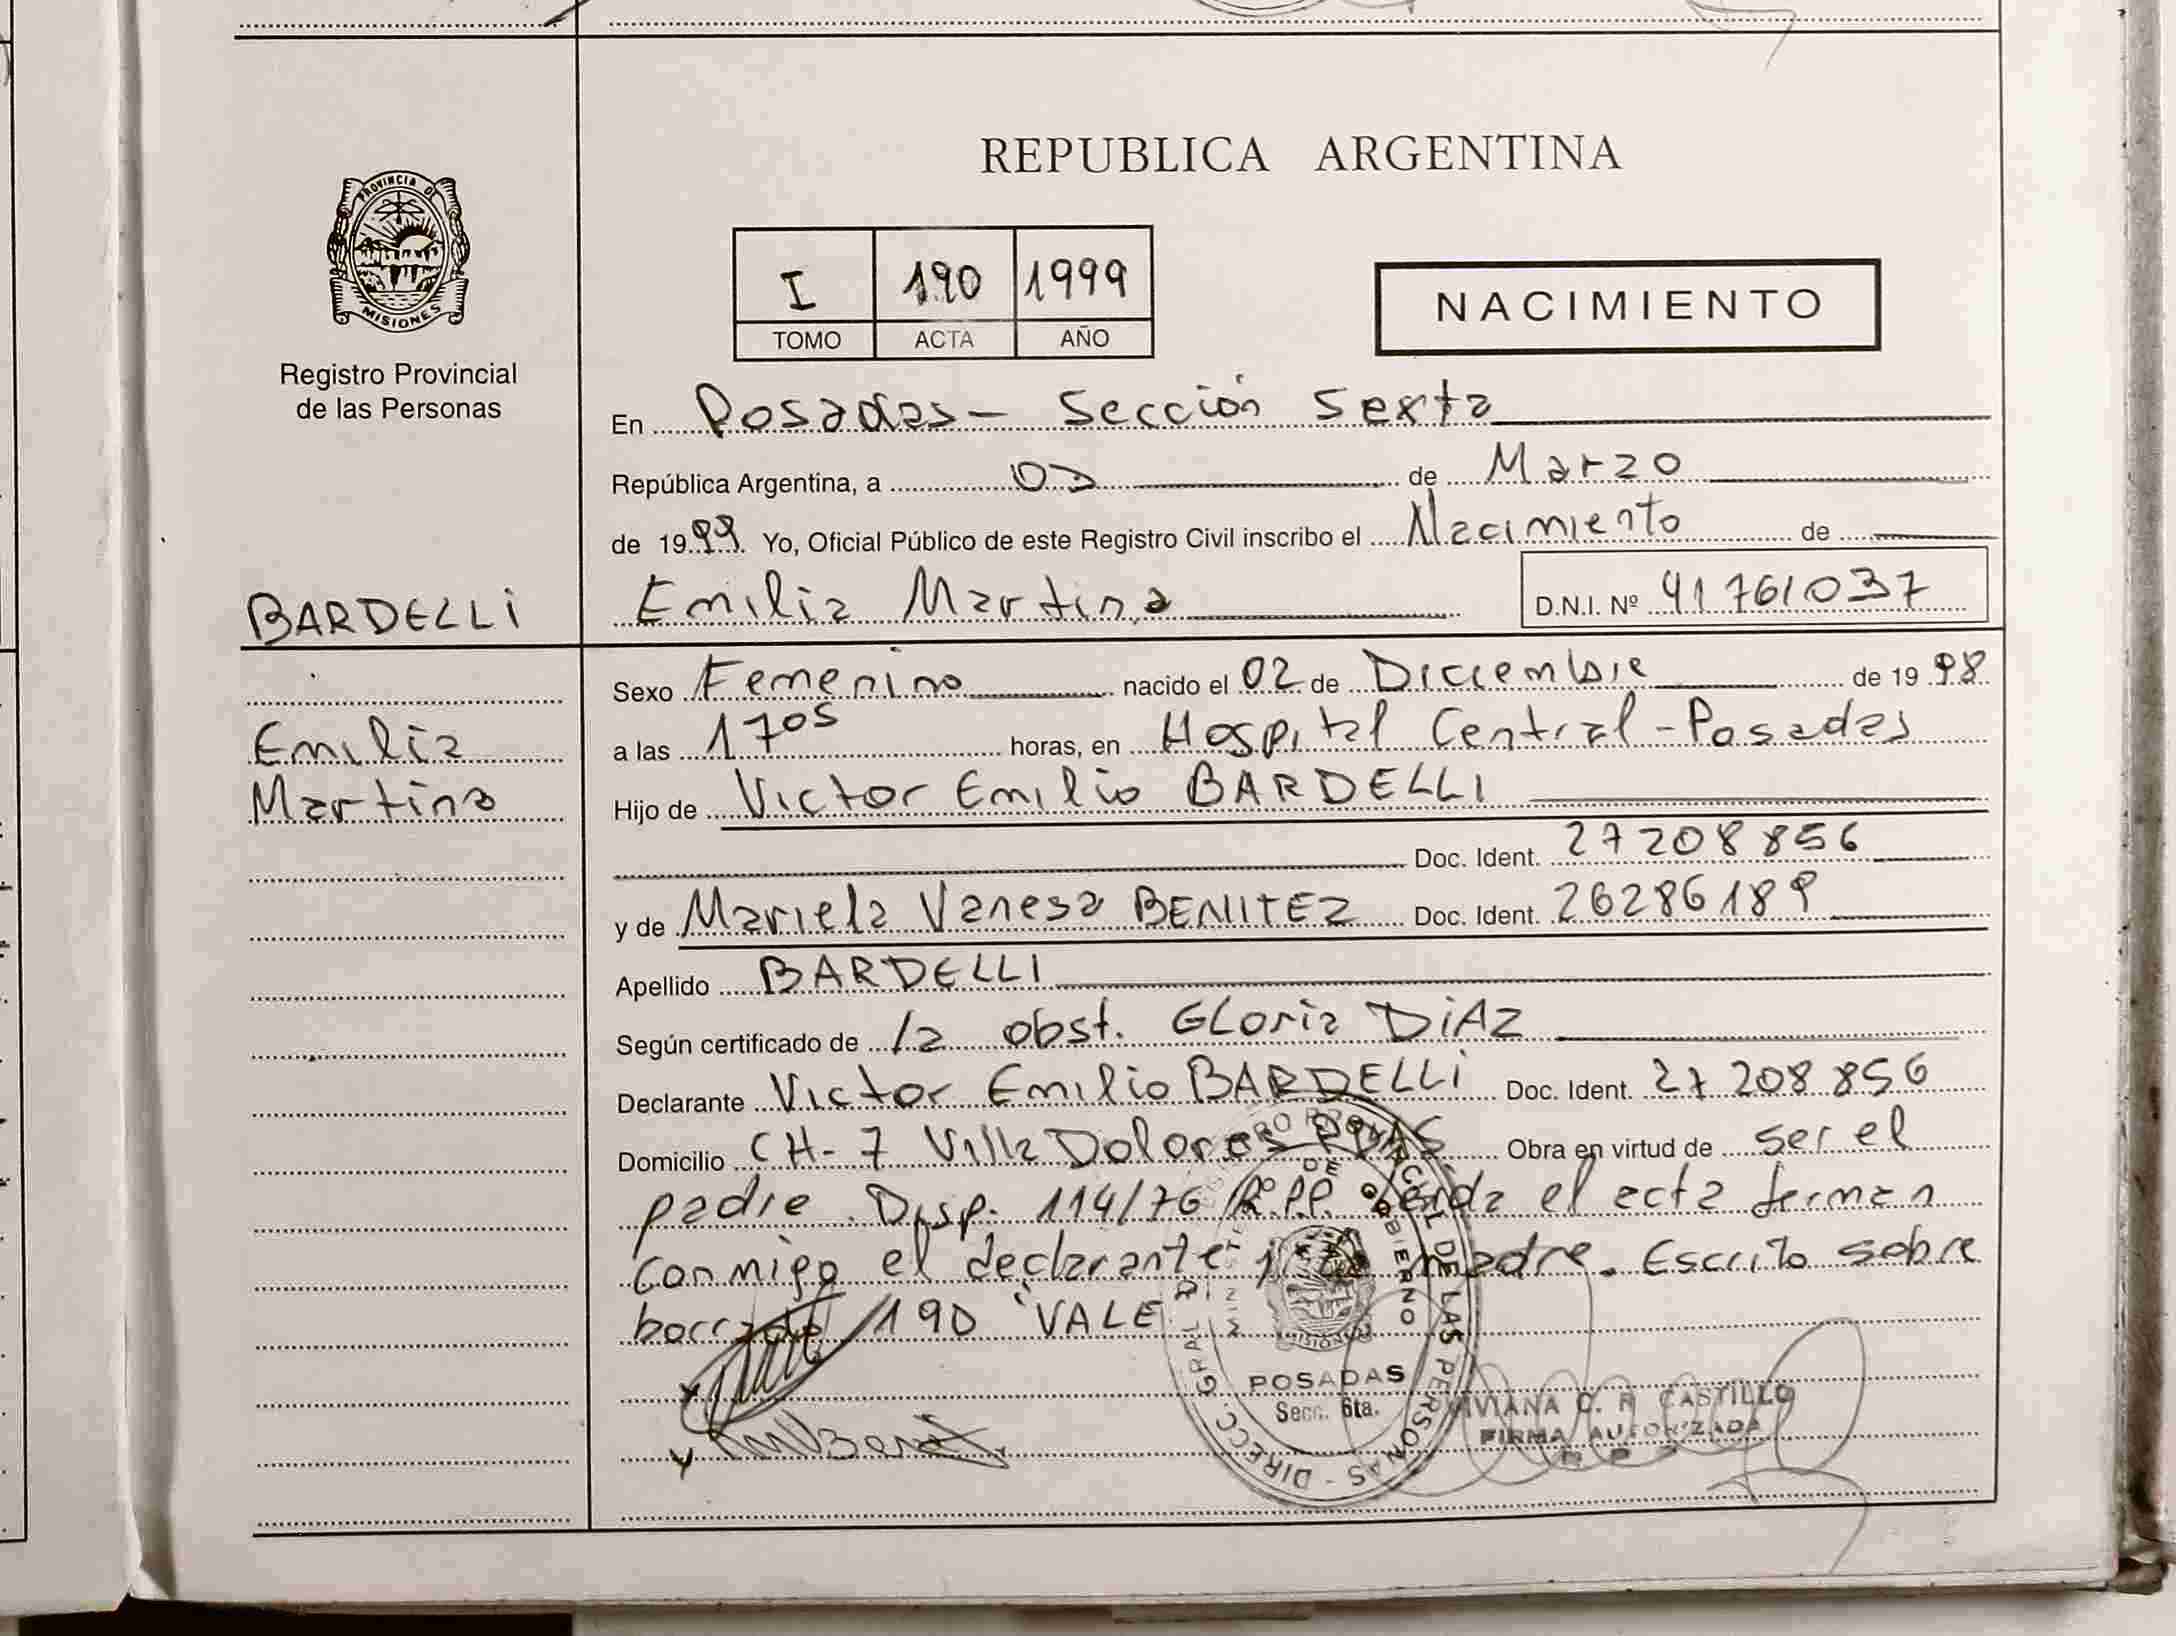 REPUBLICA ARGENTINA
PROVINCIA DE
MISIONES
Registro Provincial
de las Personas
I 190 1999
TOMO ACTA AÑO
NACIMIENTO
En Posadas - Sección Sexta
República Argentina, a de Marzo
de 1999 Yo, Oficial Público de este Registro Civil inscribo el Nacimiento de
BARDELLI
Emilia Martina D.N.I. Nº 41761037
Emilia
Martina
Sexo Femenino nacido el 02 de Diciembre de 1998
a las 1705 horas, en Hospital Central - Posadas
Hijo de Victor Emilio BARDELLI
Doc. Ident. 27208856
y de Mariela Vanesa BENITEZ Doc. Ident. 26286189
Apellido BARDELLI
Según certificado de la obst. Gloria DiAZ
Declarante Victor Emilio BARDELLI Doc. Ident. 27208856
Domicilio CH-7 Villa Dolores PDAS. Obra en virtud de ser el
padre. Disp. 114/76 R.P.P. Leida el acta firman
conmigo el declarante y la madre. Escrito sobre
borrado 190 "VALE
DIRECC. GRAL. DEL REGISTRO PROVINCIAL DE LAS PERSONAS
MINISTERIO DE GOBIERNO
MISIONES
POSADAS
Secc. 6ta.
VIVIANA C. R. CASTILLO
FIRMA AUTORIZADA